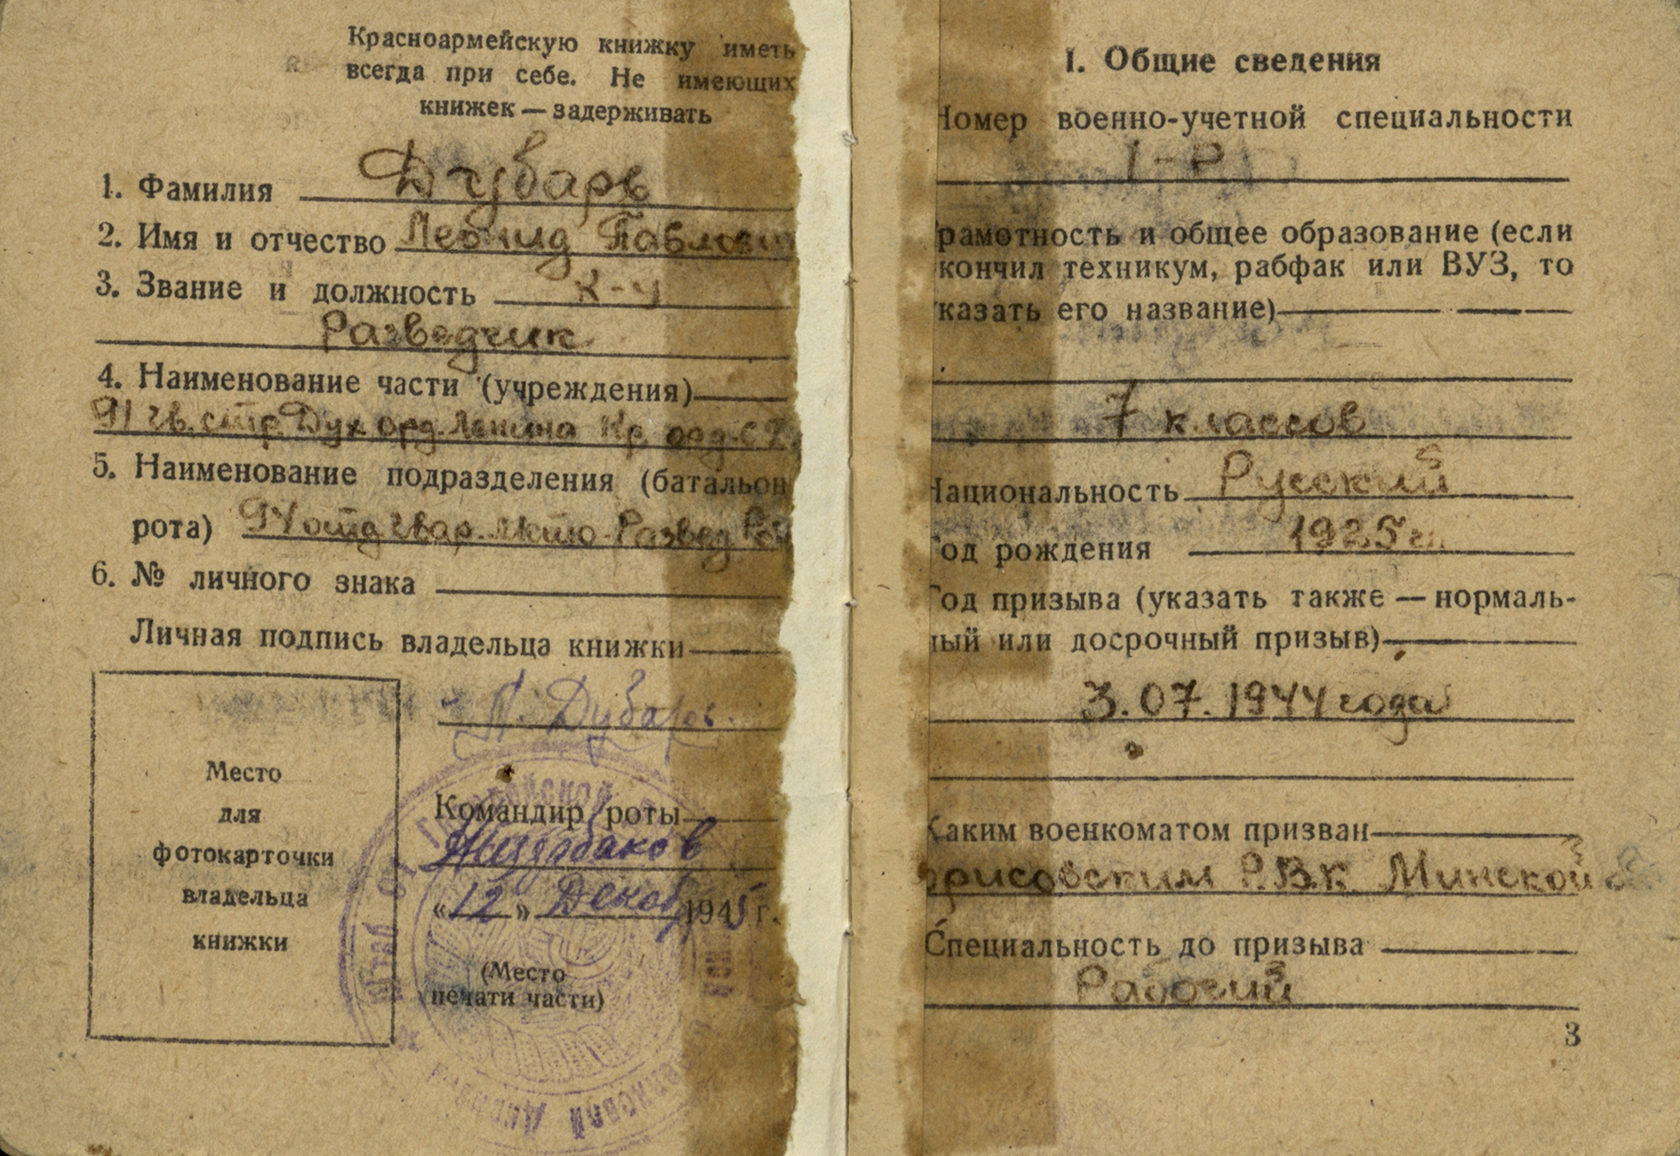 Красноармейскую книжку иметь
всегда при себе. Не имеющих
книжек — задерживать
1. Фамилия Дубарь
2. Имя и отчество Леонид Павлович
3. Звание и должность К-ц
Разведчик
4. Наименование части (учреждения)
91 гв. стр. Дух орд. Ленина Кр. орд. С
5. Наименование подразделения (батальон
рота) 94 отд гвар. Развед Рот
6. № личного знака
Личная подпись владельца книжки
Дубарь.
Место
для
фотокарточки
владельца
книжки
Командир роты
«12» Декаб 1945 г.
(Место
печати части)
I. Общие сведения
Номер военно-учетной специальности
1-Р
рамотность и общее образование (если
кончил техникум, рабфак или ВУЗ, то
казать его название)
7 классов
Национальность Русский
Год рождения 1925 г.
Год призыва (указать также — нормаль-
ный или досрочный призыв)
3.07.1944 года
Каким военкоматом призван
орисовским Р.В.К. Минской
Специальность до призыва
Рабочий
3